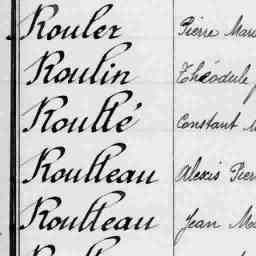 Rouler Pierre Mar
Roulin Théodule
Roulté Constant
Roulteau Alexis Pier
Roulteau Jean